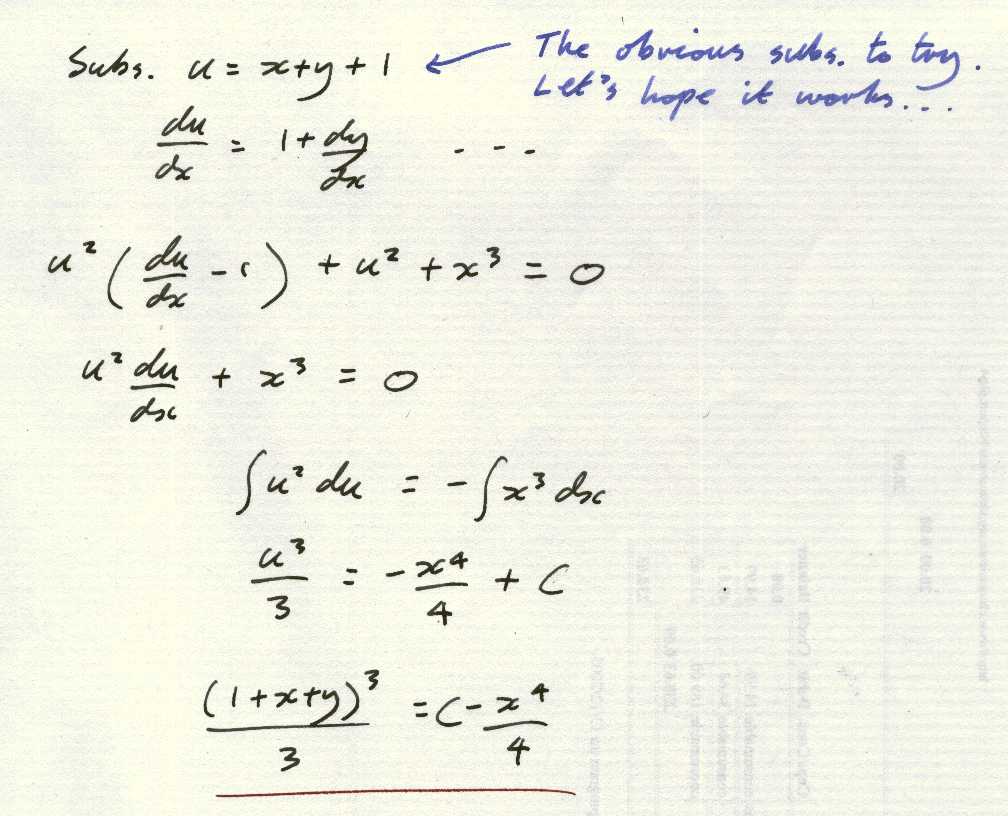 Subs. u = x+y+1
The obvious subs. to try.
Let's hope it works...
du/dx = 1 + dy/dx ....
u² (du/dx - 1) + u² + x³ = 0
u² du/dx + x³ = 0
∫u² du = -∫x³ dx
u³/3 = -x⁴/4 + C
(1+x+y)³/3 = C - x⁴/4